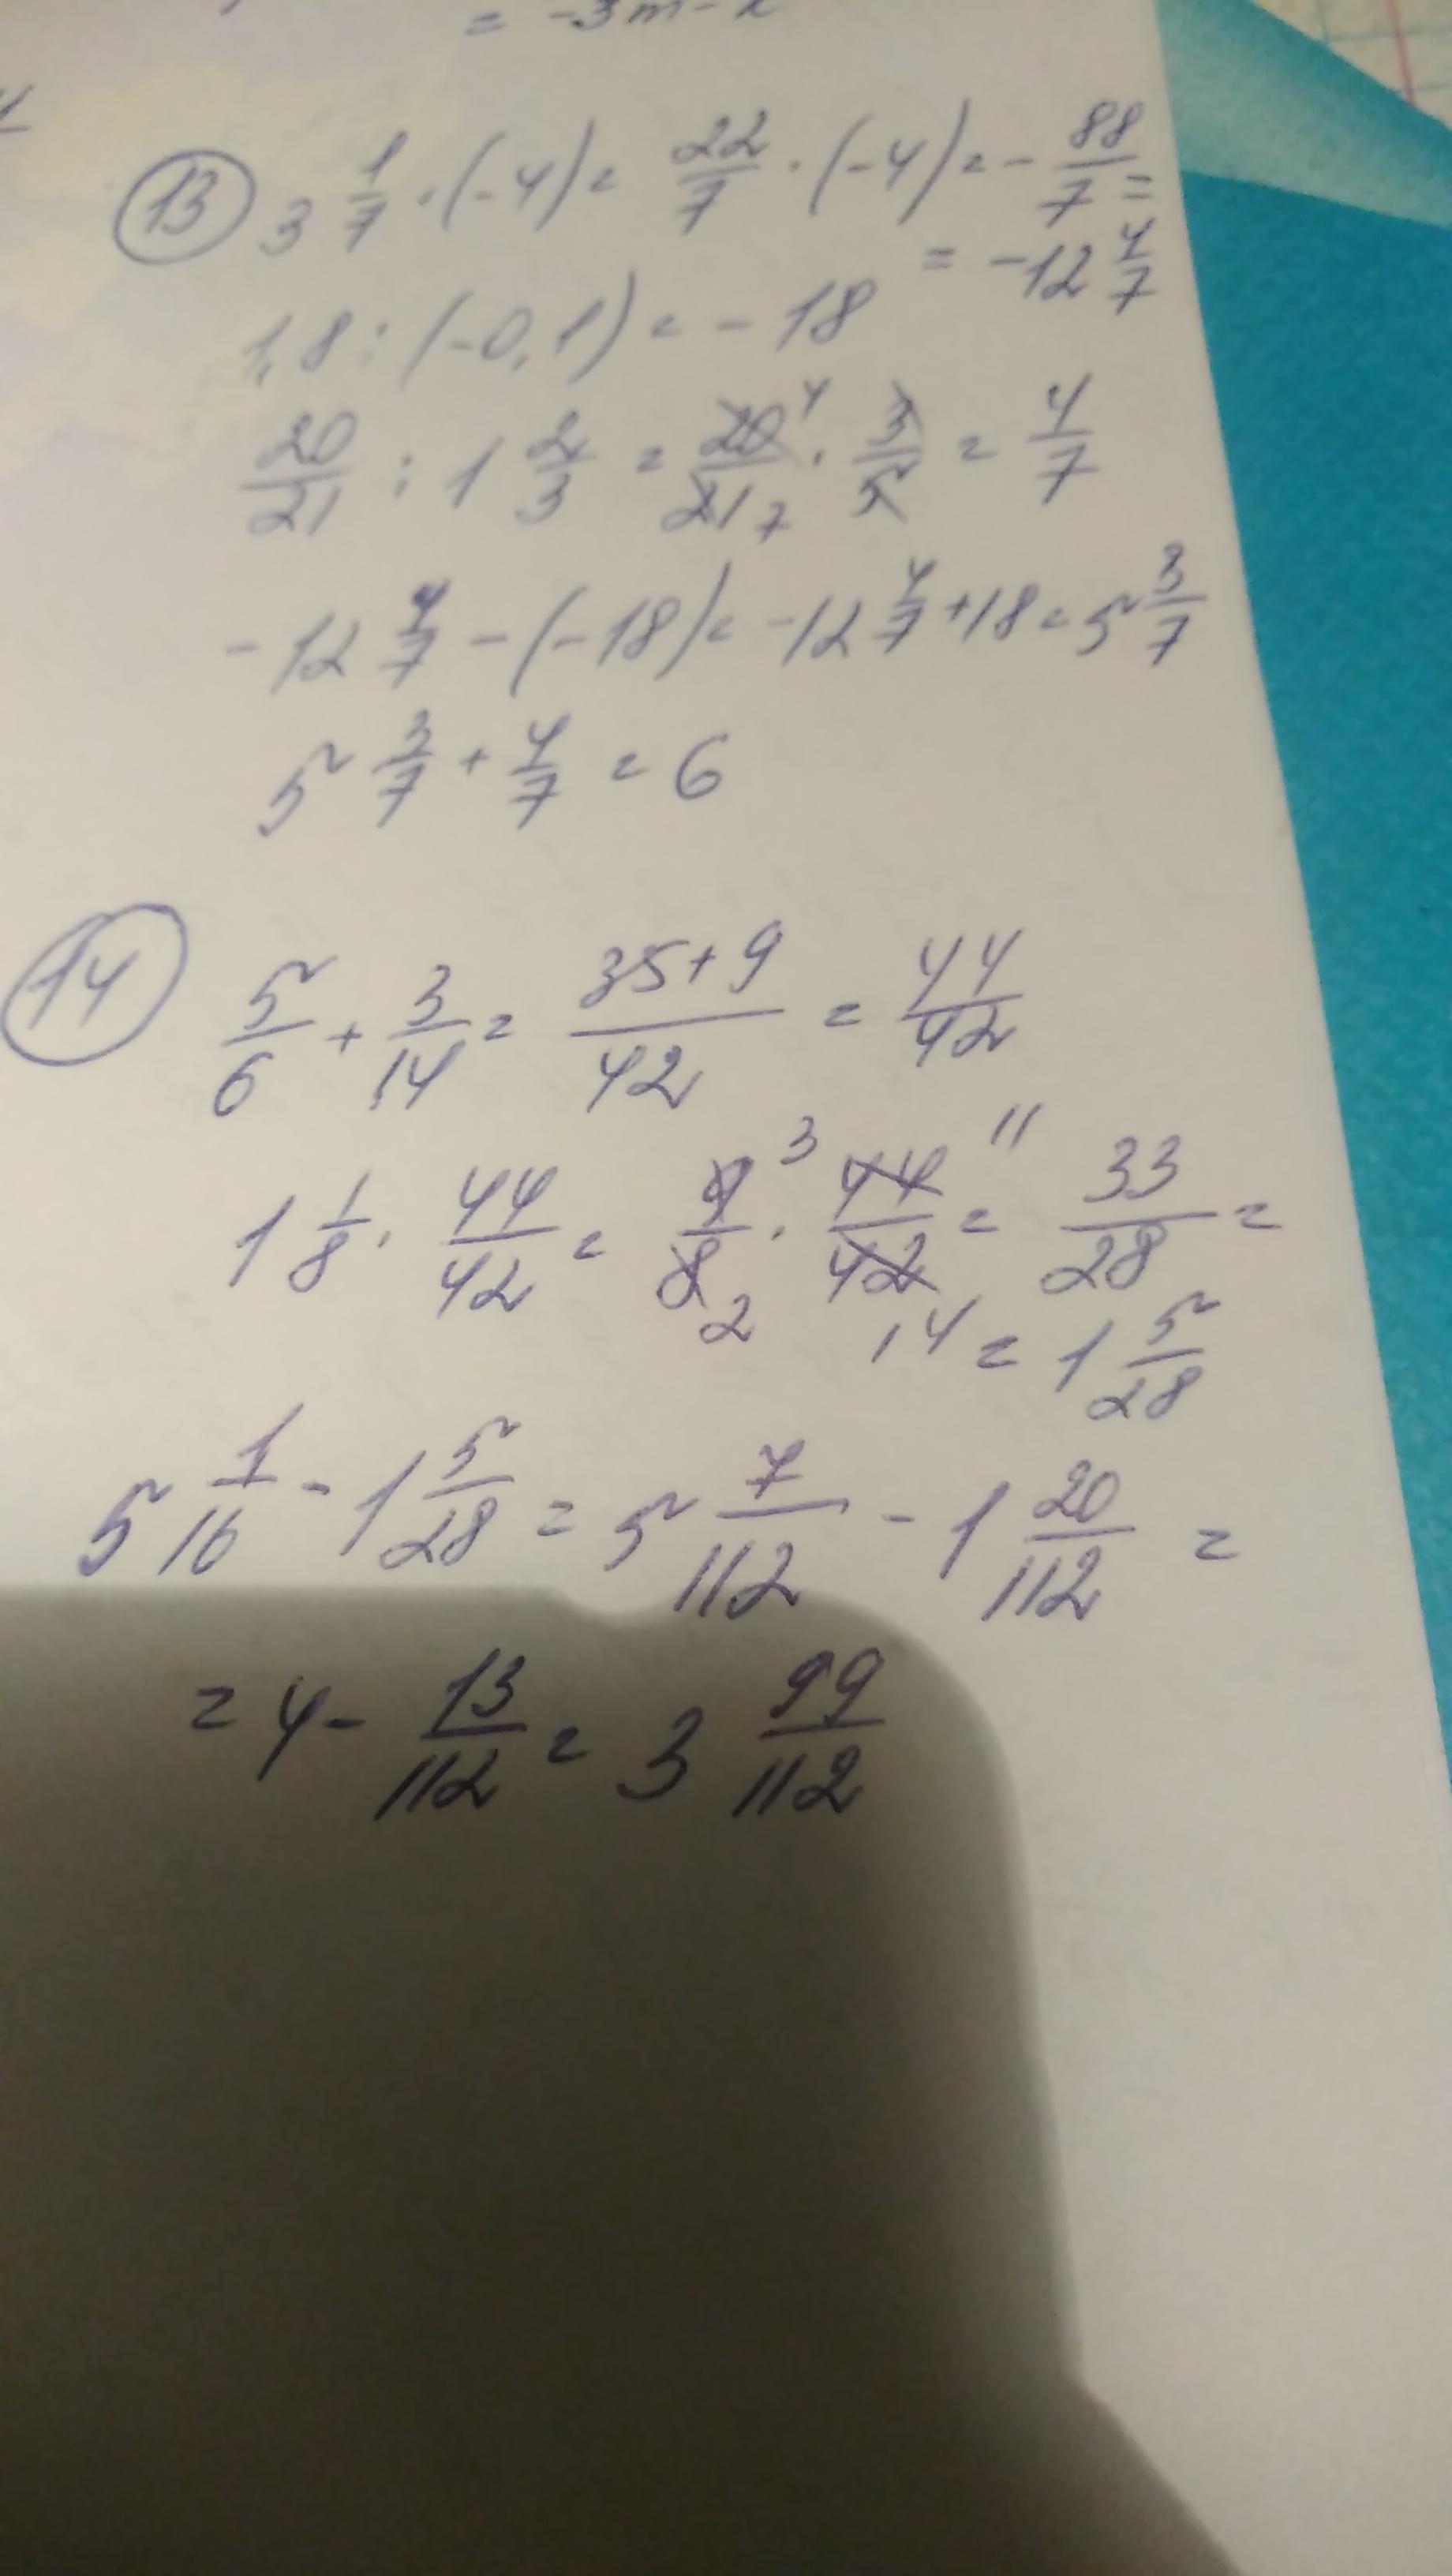 = -3m -
13 3 1/7 · (-4) = 22/7 · (-4) = - 88/7 =
= -12 4/7
1,8 : (-0,1) = - 18
20/21 : 1 2/3 = 20/21 4 7 · 3/5 = 4/7
-12 4/7 - (-18) = -12 4/7 + 18 = 5 3/7
5 3/7 + 4/7 = 6
14 5/6 + 3/14 = 35+9/42 = 44/42
1 1/8 · 44/42 = 9/8 3 2 · 44/42 11 14 = 33/28 =
= 1 5/28
5 1/16 - 1 5/28 = 5 7/112 - 1 20/112 =
= 4 - 13/112 = 3 99/112